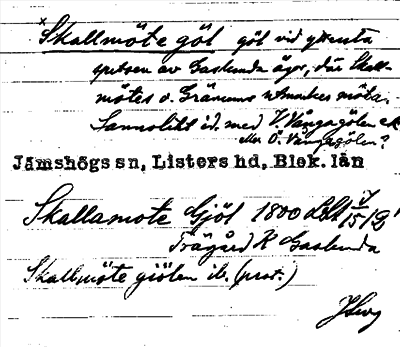 × Skallmöte göl göl vid yttersta
spetsen av Gaslunda ägor, där Skall-
mötes o. Gränums utmarker möta.
Sannolikt id. med V. Vångagölen el.
eller Ö. Vångagölen?
Jämshögs sn, Listers hd, Blek. län
Skallamote Gjöl 1800 Lskt
Frägård K Gaslunda
Skallmöte giölen ib. (prot.)